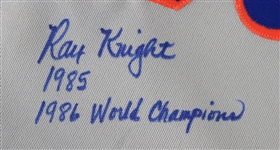 Ray Knight
1985
1986 World Champions